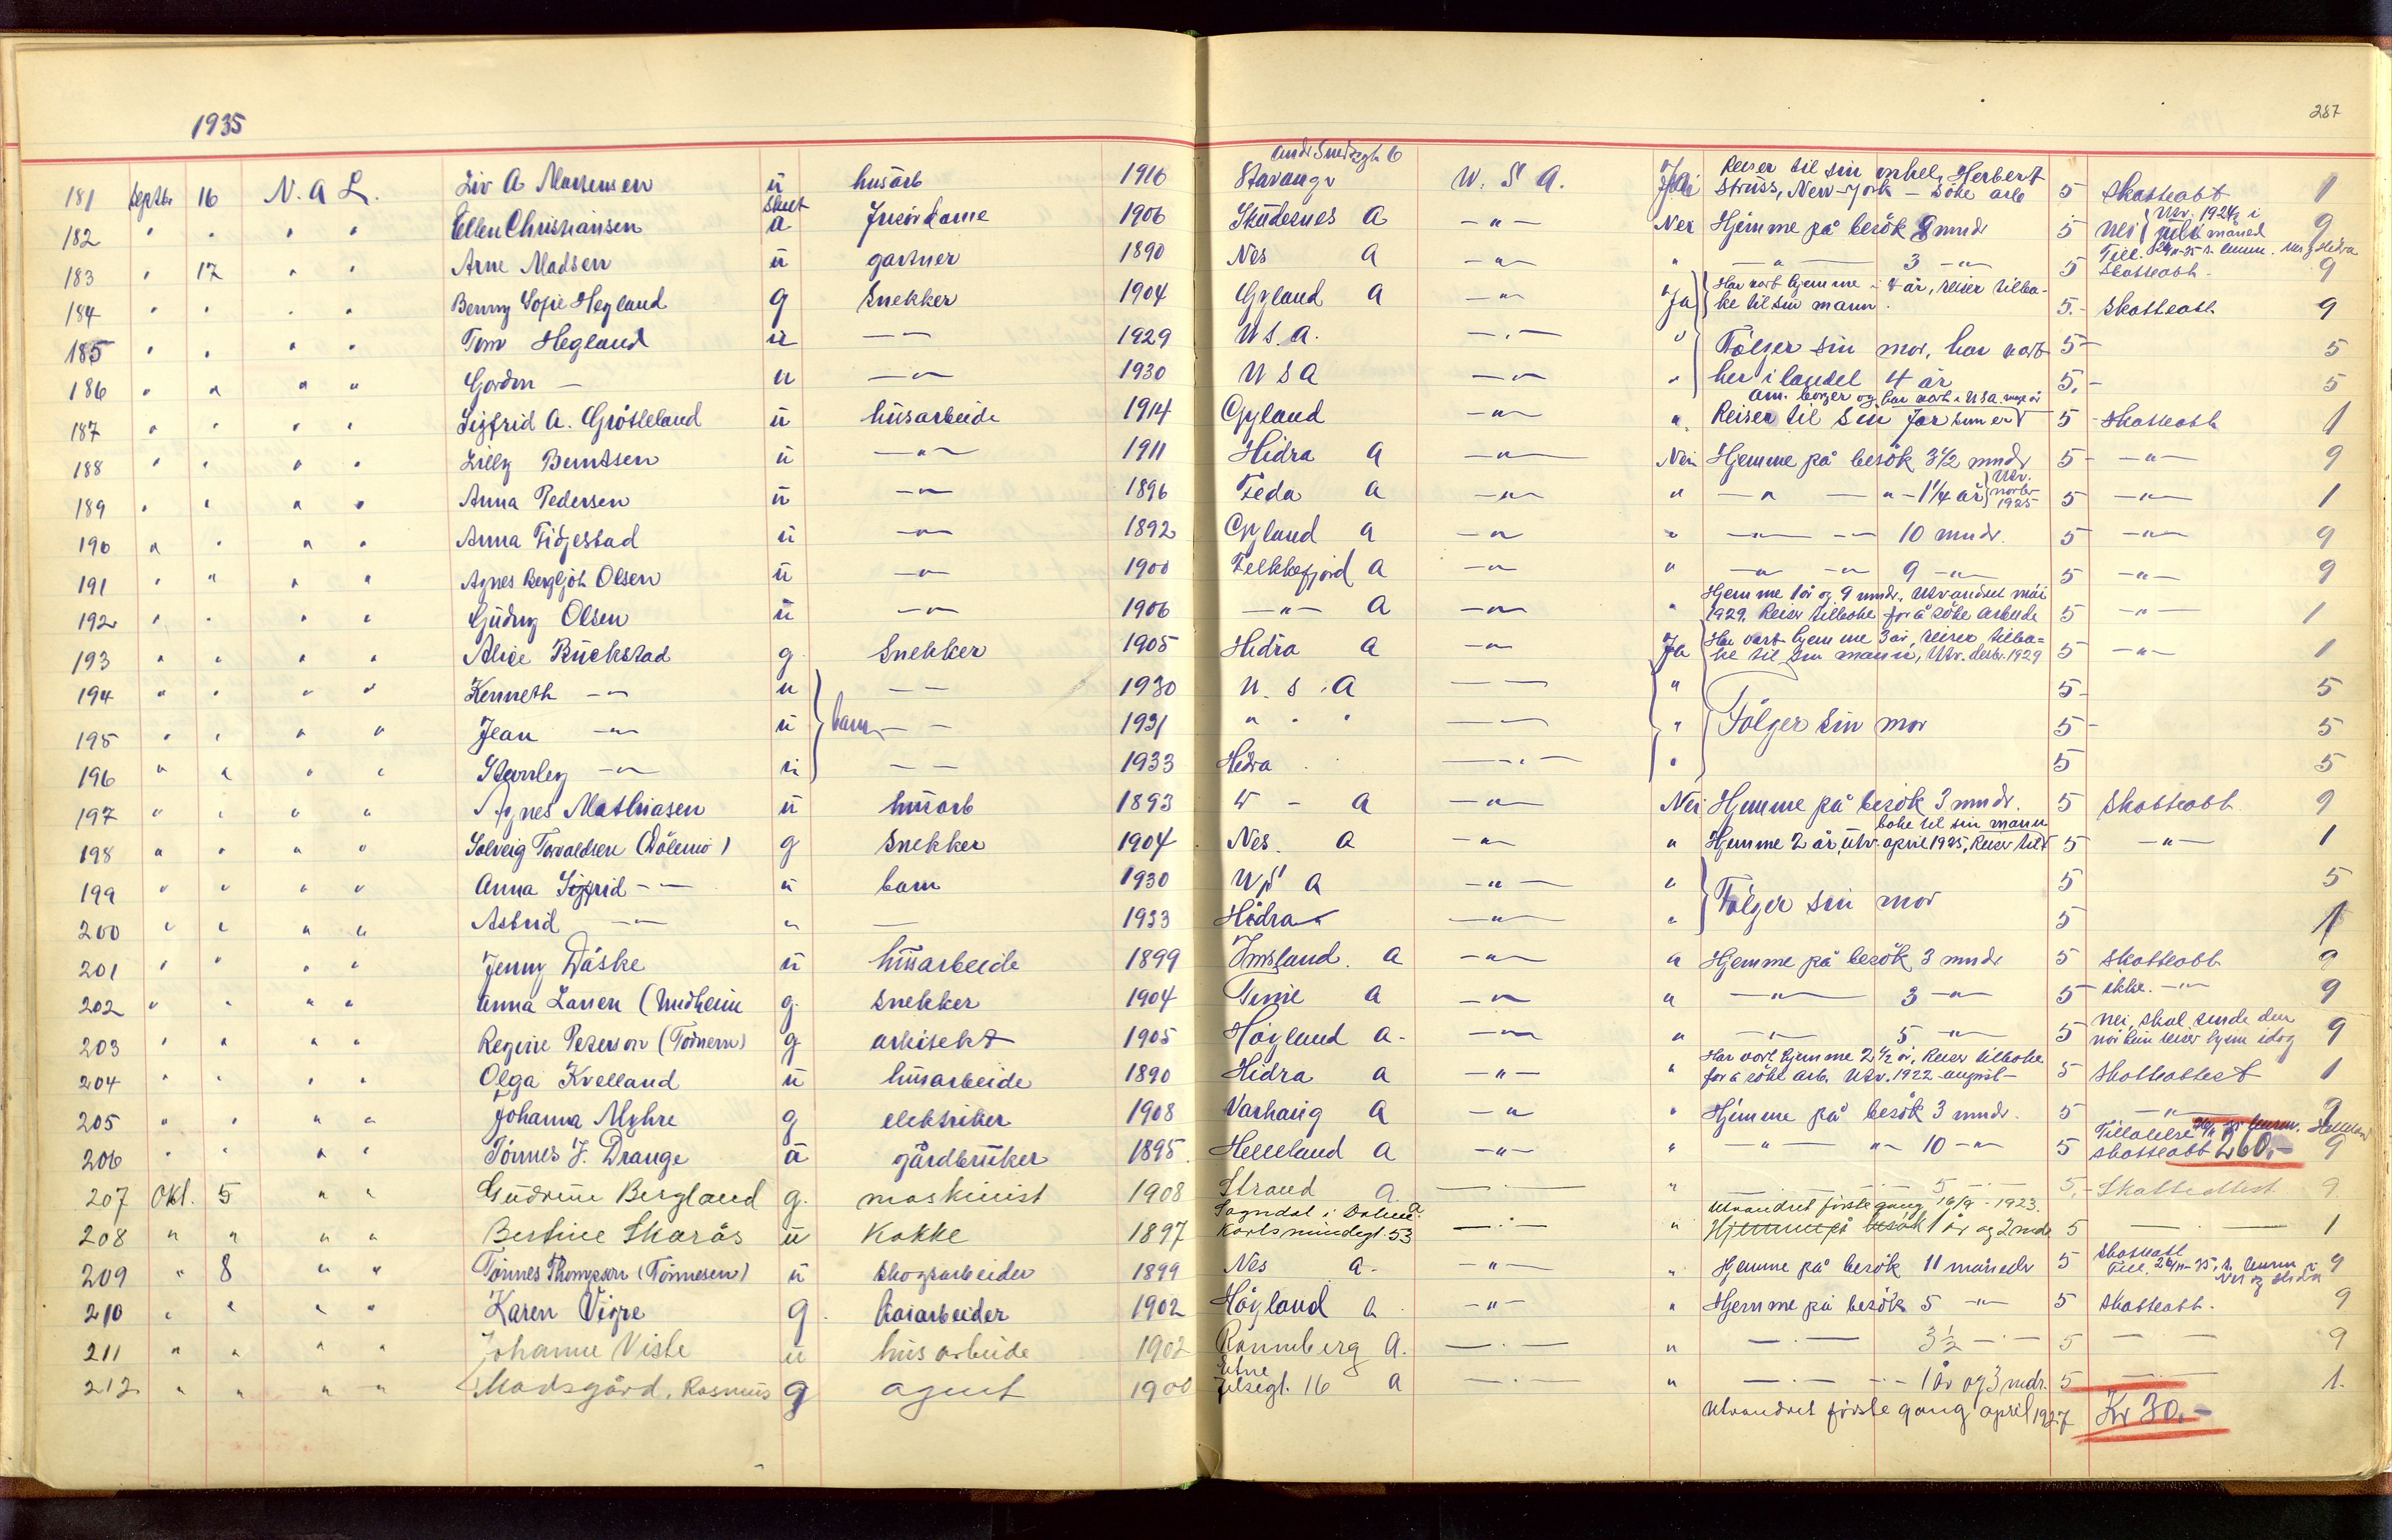 287
1935
181 Septbr 16 N. A L. Liv A Martensen ü husarb 1916 Stavangr U. S A. Ja Reiser til sin onkel, Herbert Struss, New-York – söke arb 5 skatteatt 1
182 " " " " Ellen Christiansen skilt Frisördame 1906 Skudesnes A –"– Nei Hjemme på besök 9 mndr 5 nei Utv. 1924 i juli måned 9
183 " 17 " " Arne Madsen ü gartner 1890 Nes A –"– " –"– 3 –"– 5 skatteatt. 9
184 " " " " Benny Sofie Hegland g snekker 1904 Gyland A –"– Ja Har vært hjemme i 4 år, reiser tilba-ke til sin mann. 5.- skatteatt 9
185 " " " " Tom Hegland ü –– 1929 U S. A. –"– " Fölger sin mor, har vært 5- 5
186 " " " " Gordon – u –"– 1930 U S A –"– " her i landet 4 år 5,- 5
187 " " " " Sigfrid A. Grötteland ü husarbeide 1914 Gyland –"– " am. borger og har vært i USA Reiser til sin far som er 5 - skatteatt 1
188 " " " " Lilly Berntsen ü –"– 1911 Hidra A –"– Nei Hjemme på besök 3½ mndr 5 - –"– 9
189 " " " " Anna Pedersen ü –"– 1896 Feda A –"– " –"– –"– 1¼ år Utv. novbr 1925 5 –"– 1
190 " " " " Anna Fidjestad ü –"– 1892 Gyland A –"– " –"– –"– 10 mndr. 5 –"– 9
191 " " " " Agnes Bergljot Olsen ü –"– 1900 Flekkefjord A –"– " –"– –"– 9 –"– 5 –"– 9
192 " " " " Gudny Olsen ü –"– 1906 –"– A –"– " Hjemme 1 år og 9 mndr, utvandret mai 1929. Reiser tilbake for å söke arbeide 5 –"– 1
193 " " " " Alice Buckstad g. snekker 1905 Hidra A –"– Ja Har vært hjemme 3 år, reiser tilba=ke til sin mann, Utv. desbr. 1929 5 –"– 1
194 " " " " Kenneth –"– u –– 1930 U. S. A –– " 5- 5
195 " " " " Jean –"– ü barn –– 1931 " " " –– " Fölger sin mor 5- 5
196 " " " " Stanley –"– ü –– 1933 Hidra –"– " 5 5
197 " " " " Agnes Mathiasen ü husarb 1893 " – A –"– Nei Hjemme på besök 3 mndr. 5 skatteatt 9
198 " " " " Solveig Torvaldsen (Dölemo) g snekker 1904 Nes. A –"– " Hjemme 2 år, utv. april 1925, Reiser til-bake til sin mann 5 –"– 1
199 " " " " Anna Sigfrid –– ü barn 1930 U S A –"– " Fölger sin mor 5 5
200 " " " " Astrid –"– " –– 1933 Hidra –"– " 5 1
201 " " " " Jenny Våske ü husarbeide 1899 Imsland. A –"– " Hjemme på besök 3 mndr 5 skatteatt 9
202 " " " " Anna Larsen (Undheim g. snekker 1904 Time A –"– " –"– 3 –"– 5 ikke. –"– 9
203 " " " " Regine Peterson g arkitekt 1905 Höyland A- –"– " –"– 5 –"– 5 nei, skal sende den når hun reiser hjem idag 9
204 " " " " Olga Kvelland ü husarbeide 1890 Hidra A –"– " Har vært hjemme 2½ år. Reiser tilbake for å söke arb. Utv. 1922 august – 5 skatteattest 1
205 " " " " Johanna Myhre g elektriker 1908 Varhaug A –"– " Hjemme på besök 3 mndr. 5 –"– 9
206 " " " " Tönnes J. Drange ü gårdbruker 1895 Helleland A –"– " –"– "– 10 –"– 5 Tillatelse skatteatt 260,- 9
207 Okt. 5 " " Gudrun Bergland g. maskinist 1908 Strand A. –"– " –"– 5 –"– 5,- Skatteattest 9
208 " " " " Bertine Skarås ü Kokke 1897 Sogndal i Dalene Karlsmindegt. 53 –"– " Utvandret förste gang 16/9 - 1923. Hjemme på besök 1 år og 2 mndr 5 –"– 1
209 " 8 " " Tönnes Thompson (Tönnesen) ü skogsarbeider 1899 Nes A- –"– " Hjemme på besök 11 måneder 5 skatteatt 9
210 " " " " Karen Vigre g. 1902 Höyland A. –"– " Hjemme på besök 5 –"– 5 skatteatt. 9
211 " " " " Johanne Viste ü husarbeide 1902 A. –"– " –"– 3½ –"– 5 –"– 9
212 " " " " Madsgård, Rasmus g agent 1900 Etne 16 A –"– " –"– –"– 1 år og 3 mdr. 5 –"– 1.
Utvandret förste gang april 1927 Kr 30.-